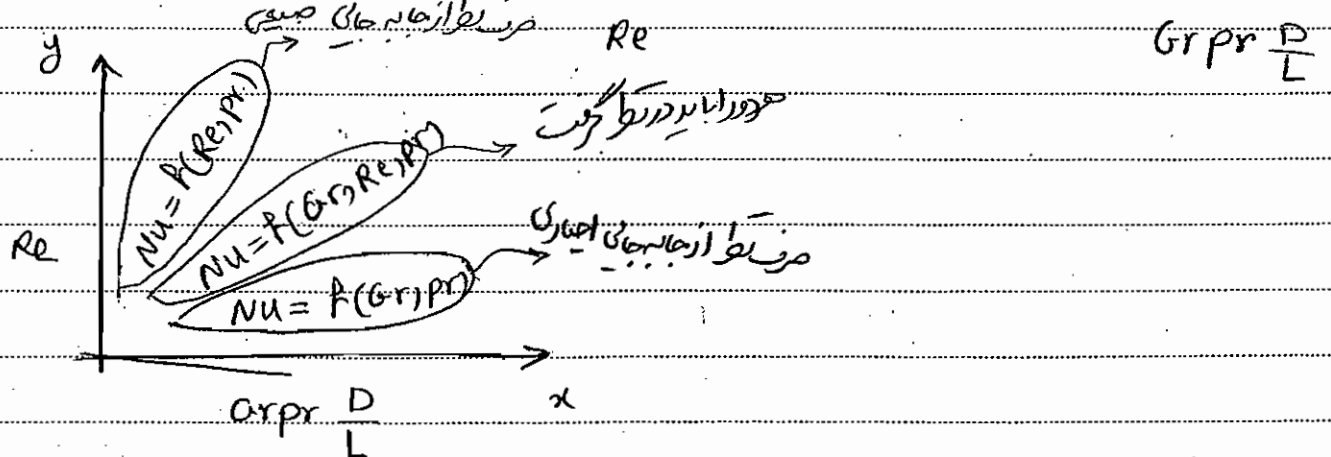 صرف نظر از جابه جائی طبیعی
y Re Gr pr D/L
Nu = f(Re, pr)
هر دو را باید در نظر گرفت
Nu = f(Gr, Re, pr)
صرف نظر از جابه جائی اجباری
Re
Nu = f(Gr, pr)
Gr pr D/L x